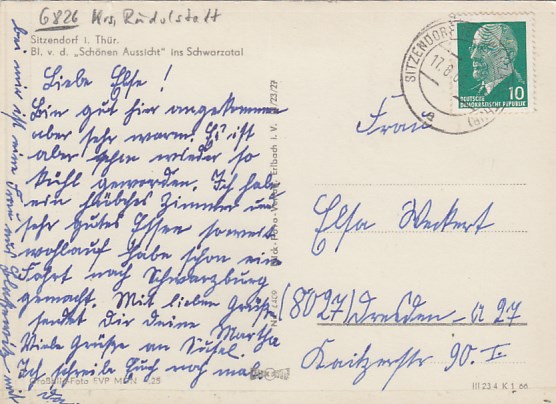 6826 Krs. Rudolstadt
Sitzendorf i. Thür.
Bl. v. d. „Schönen Aussicht" ins Schwarzatal
Liebe Else!
Bin gut hier angekommen
aber sehr warm. Es ist
aber schon wieder so
kühl geworden. Ich habe
ein hübsches Zimmer und
sehr gutes Essen soweit
wohlauf habe schon eine
Fahrt nach Schwarzburg
gemacht. Mit lieben Grüßen
sendet Dir deine Martha
Viele Grüße an Susel.
Ich schreibe Euch noch mal.
bei mir ist eine Frau aus
mit
da
SITZENDORF
17.8.
a
DEUTSCHE
DEMOKRATISCHE REPUBLIK
10
Frau
Elsa Weckert
(8027) Dresden A 27
Kaitzerstr 90. I.
Erlbach i. V.
Großbild-Foto EVP MDN
III 23 4 K 1 66